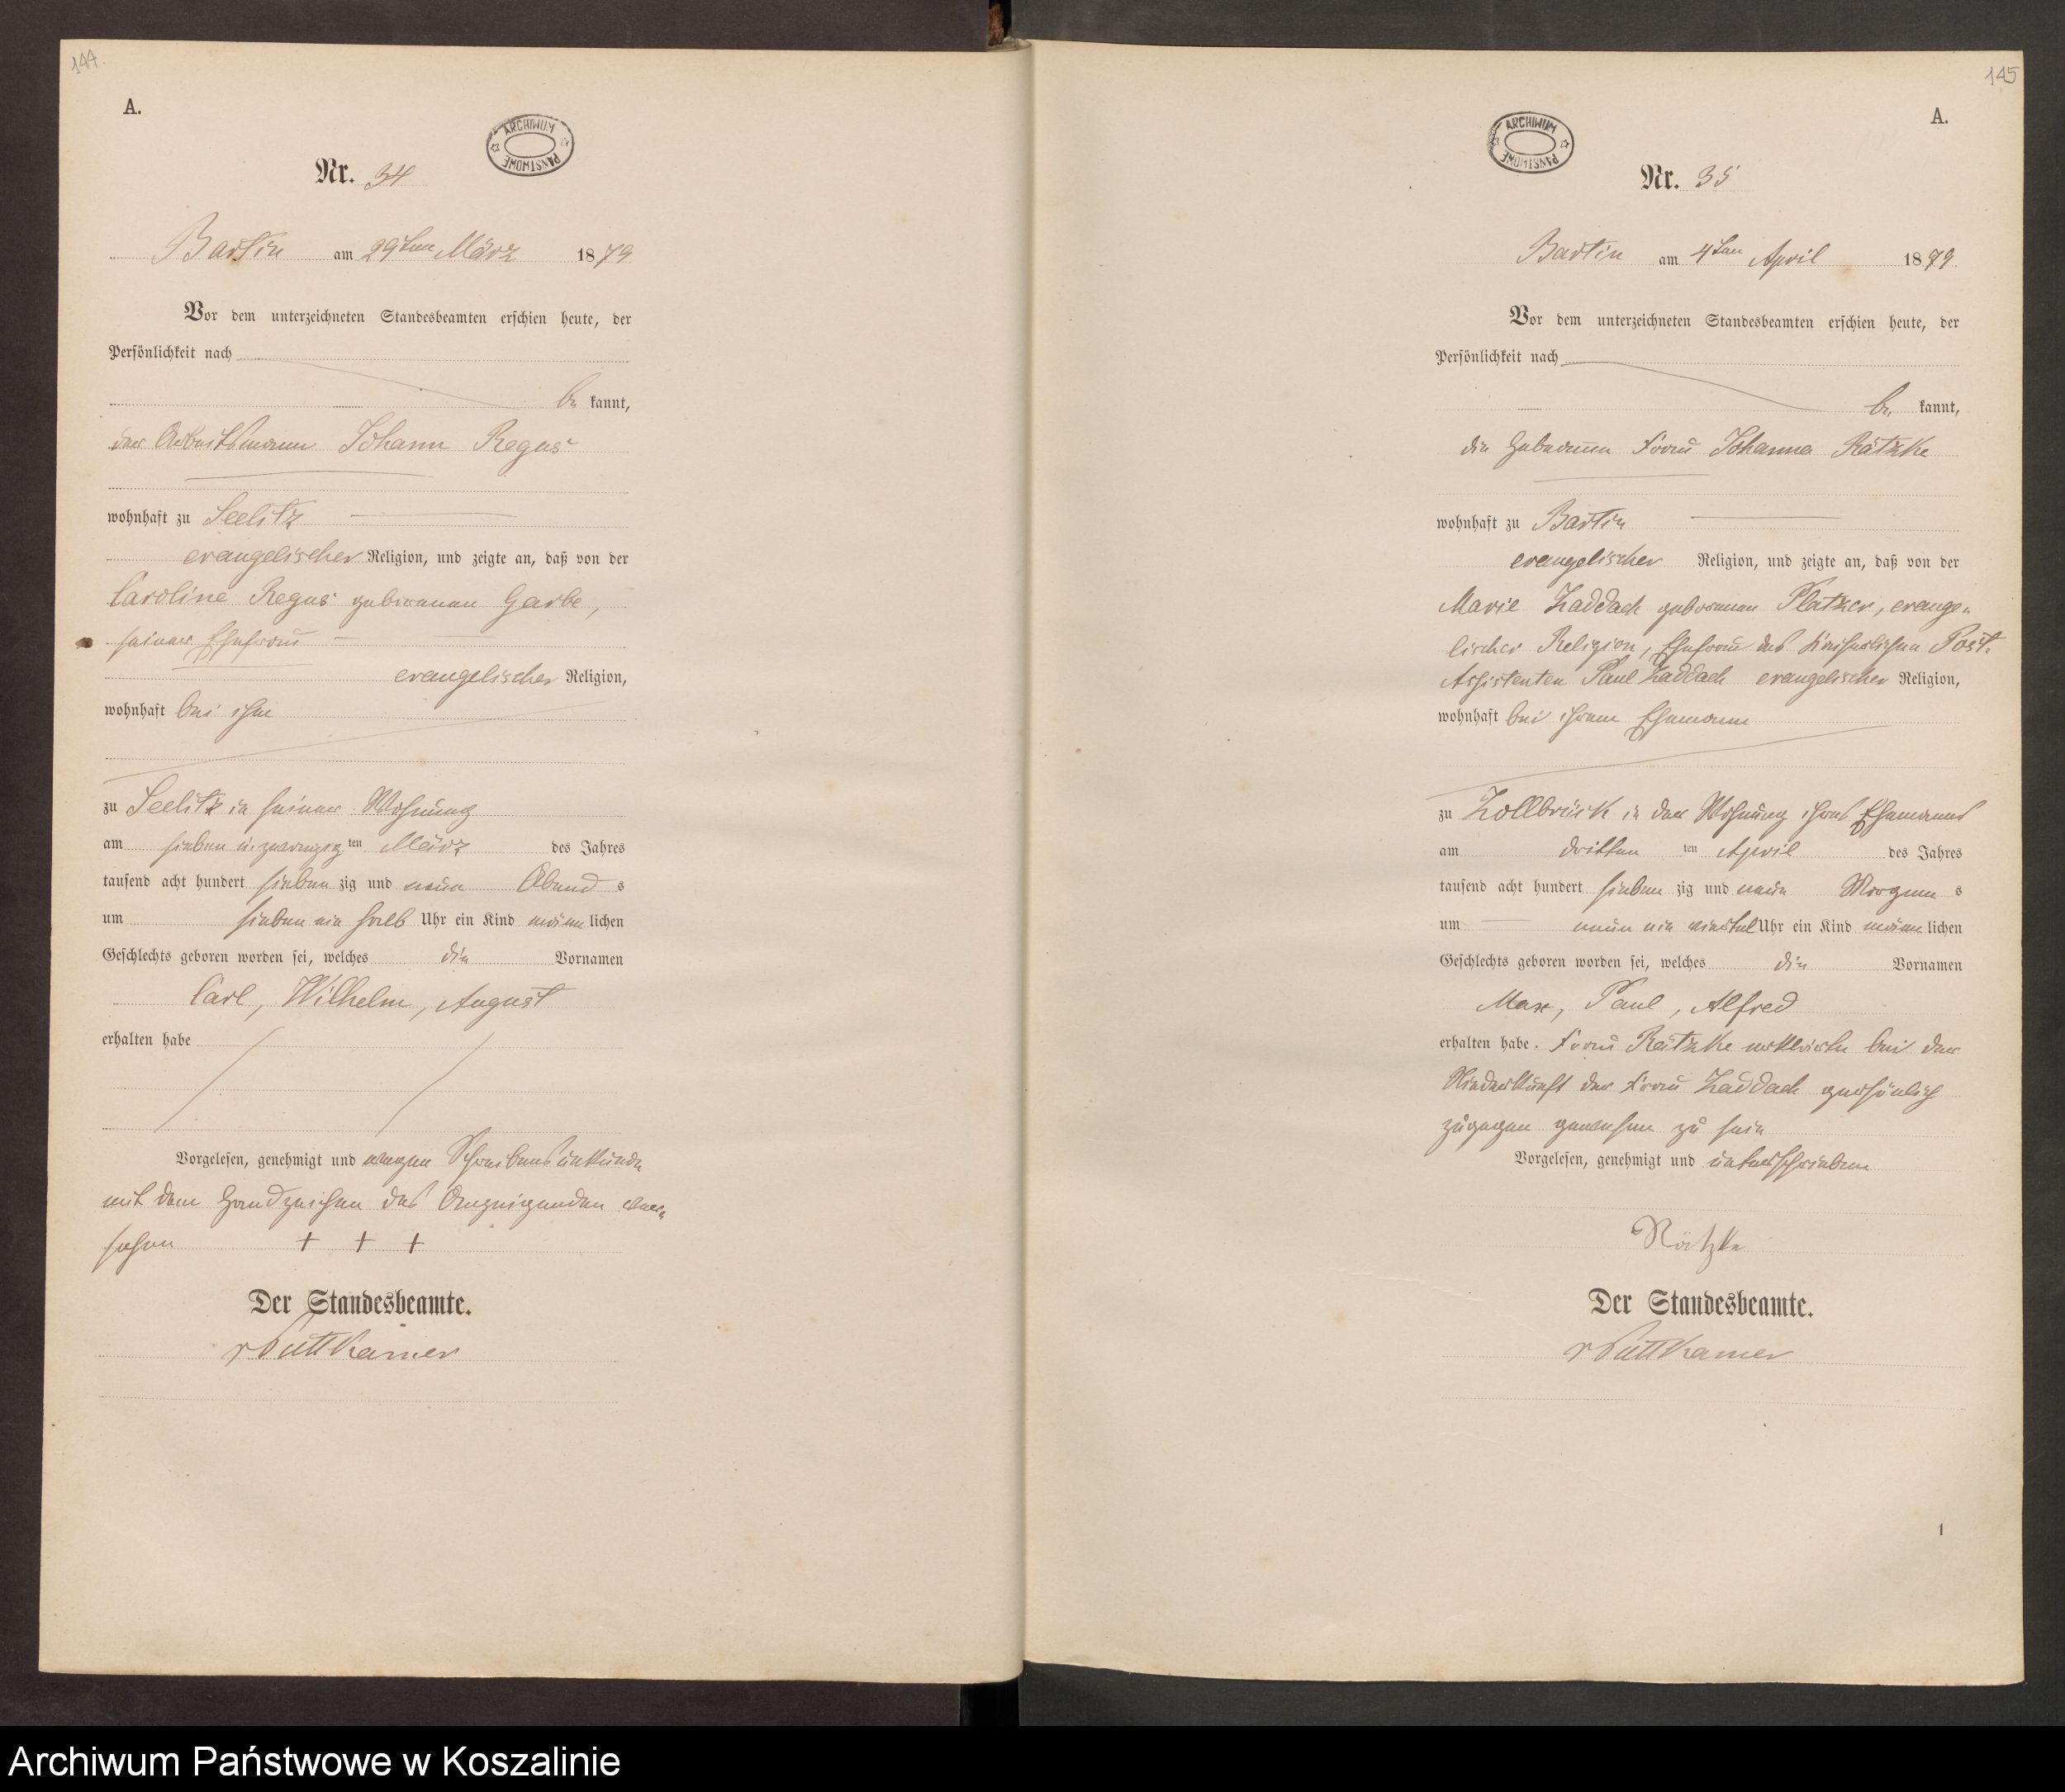 144.
A.
ARCHIWUM PAŃSTWOWE
Nr. 34
Bartin am 29ten März 1879
Vor dem unterzeichneten Standesbeamten erschien heute, der
Persönlichkeit nach
be kannt,
der Arbeitsmann Johann Regus
wohnhaft zu Seelitz
evangelischer Religion, und zeigte an, daß von der
Caroline Regus geborenen Garbe,
seiner Ehefrau
evangelischer Religion,
wohnhaft bei ihm
zu Seelitz in seiner Wohnung
am sieben u. zwanzig ten März des Jahres
tausend acht hundert sieben zig und neun Abend s
um sieben ein halb Uhr ein Kind männ lichen
Geschlechts geboren worden sei, welches die Vornamen
Carl, Wilhelm, August
erhalten habe
Vorgelesen, genehmigt und wegen Schreibensunkunde
mit dem Handzeichen des Anzeigenden ver-
sehen + + +
Der Standesbeamte.
vPuttkamer
145
A.
ARCHIWUM PAŃSTWOWE
Nr. 35
Bartin am 4ten April 1879.
Vor dem unterzeichneten Standesbeamten erschien heute, der
Persönlichkeit nach
be kannt,
die Hebamme Frau Johanna Rätzke
wohnhaft zu Bartin
evangelischer Religion, und zeigte an, daß von der
Marie Zaddach geborenen Platzer, evange-
lischer Religion, Ehefrau des Kaiserlichen Post-
Assistenten Paul Zaddach evangelischer Religion,
wohnhaft bei ihrem Ehemann
zu Zollbrück in der Wohnung ihres Ehemannes
am dritten ten April des Jahres
tausend acht hundert sieben zig und neun Morgen s
um neun ein viertel Uhr ein Kind männ lichen
Geschlechts geboren worden sei, welches die Vornamen
Max, Paul, Alfred
erhalten habe. Frau Rätzke erklärte bei der
Niederkunft der Frau Zaddach persönlich
zugegen gewesen zu sein
Vorgelesen, genehmigt und unterschrieben
Rätzke
Der Standesbeamte.
vPuttkamer
1
Archiwum Państwowe w Koszalinie